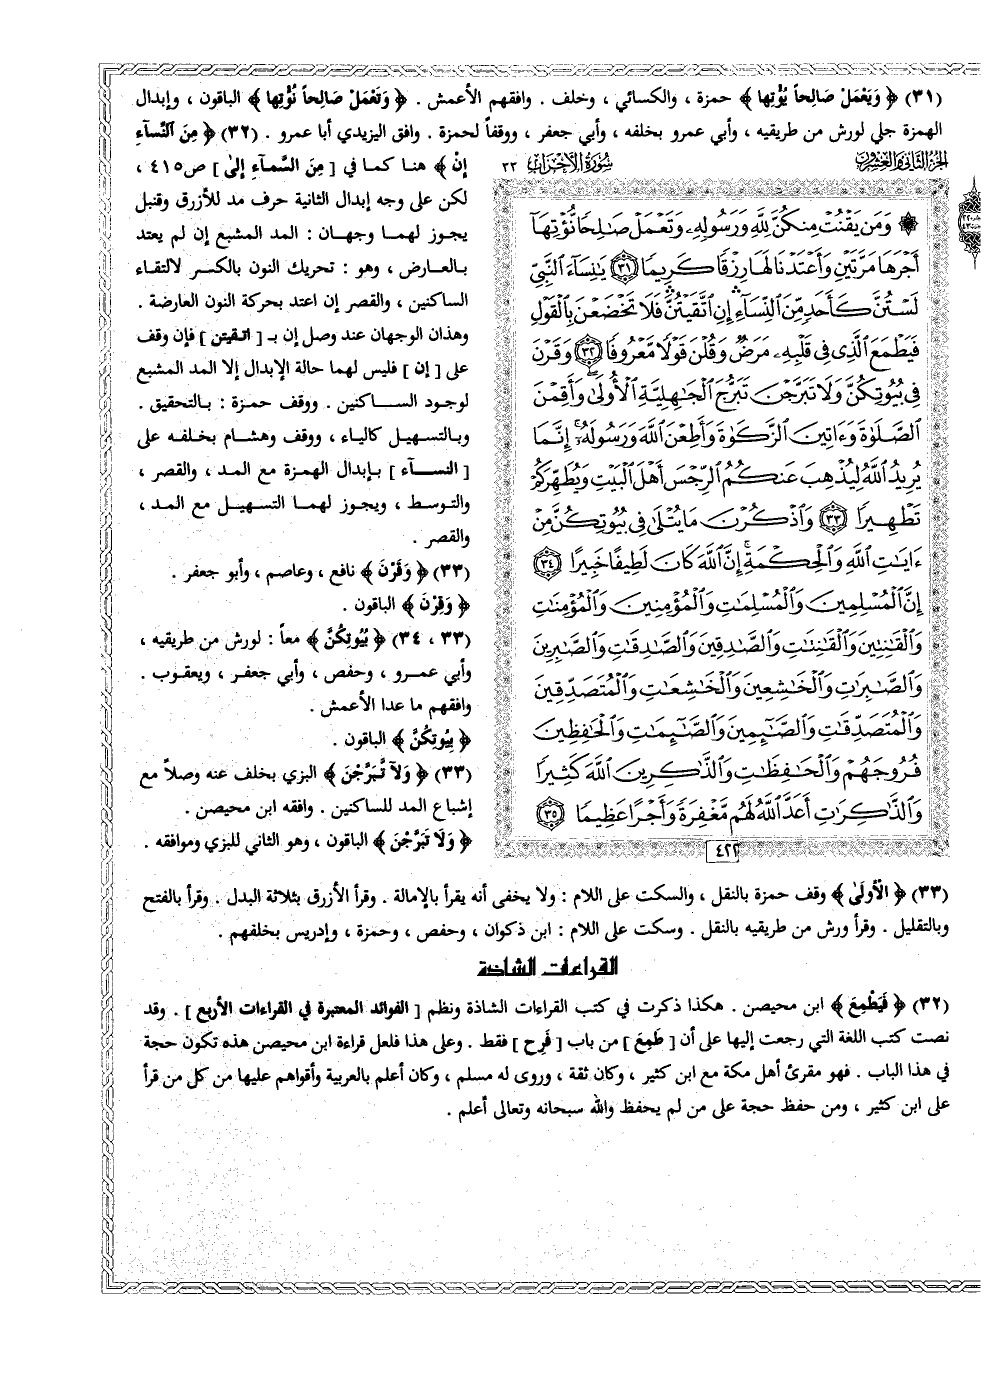 (٣١) ﴿ وَيَعْمَلْ صَالِحاً يُؤْتِها ﴾ حمزة ، والكسائي ، وخلف . وافقهم الأعمش . ﴿ وَتَعْمَلْ صَالِحاً نُؤْتِها ﴾ الباقون ، وإبدال
الهمزة جلي لورش من طريقيه ، وأبي عمرو بخلفه ، وأبي جعفر ، ووقفاً لحمزة . وافق اليزيدي أبا عمرو . (٣٢) ﴿ مِنَ النِّسَآءِ
إِنْ ﴾ هنا كما في [ مِنَ السَّمآءِ إِلىٰ ] ص٤١٥ ،
لكن على وجه إبدال الثانية حرف مد للأزرق وقنبل
يجوز لهما وجهان : المد المشبع إن لم يعتد
بالعارض ، وهو : تحريك النون بالكسر لالتقاء
الساكنين ، والقصر إن اعتد بحركة النون العارضة .
وهذان الوجهان عند وصل إن بـ [ اتقيتن ] فإن وقف
على [ إن ] فليس لهما حالة الإبدال إلا المد المشبع
لوجود الساكنين . ووقف حمزة : بالتحقيق .
وبالتسهيل كالياء ، ووقف وهشام بخلفه على
[ النسآء ] بإبدال الهمزة مع المد ، والقصر ،
والتوسط ، ويجوز لهما التسهيل مع المد ،
والقصر .
(٣٣) ﴿ وَقَرْنَ ﴾ نافع ، وعاصم ، وأبو جعفر .
﴿ وَقِرْنَ ﴾ الباقون .
(٣٣ ، ٣٤) ﴿ بُيُوتِكُنَّ ﴾ معاً : لورش من طريقيه ،
وأبي عمرو ، وحفص ، وأبي جعفر ، ويعقوب .
وافقهم ما عدا الأعمش .
﴿ بِيُوتِكُنَّ ﴾ الباقون .
(٣٣) ﴿ وَلآ تَّبَرَّجْنَ ﴾ البزي بخلف عنه وصلاً مع
إشباع المد للساكنين . وافقه ابن محيصن .
﴿ وَلَا تَبَرَّجْنَ ﴾ الباقون ، وهو الثاني للبزي وموافقه .
الجزء الثاني والعشرون سورة الأحزاب ٣٣
۞ وَمَن يَقْنُتْ مِنكُنَّ لِلَّهِ وَرَسُولِهِۦ وَتَعْمَلْ صَٰلِحًا نُّؤْتِهَآ
أَجْرَهَا مَرَّتَيْنِ وَأَعْتَدْنَا لَهَا رِزْقًا كَرِيمًا ٣١ يَٰنِسَآءَ النَّبِيِّ
لَسْتُنَّ كَأَحَدٍ مِّنَ النِّسَآءِ إِنِ اتَّقَيْتُنَّ فَلَا تَخْضَعْنَ بِالْقَوْلِ
فَيَطْمَعَ الَّذِي فِي قَلْبِهِۦ مَرَضٌ وَقُلْنَ قَوْلًا مَّعْرُوفًا ٣٢ وَقَرْنَ
فِي بُيُوتِكُنَّ وَلَا تَبَرَّجْنَ تَبَرُّجَ الْجَٰهِلِيَّةِ الْأُولَىٰ وَأَقِمْنَ
الصَّلَوٰةَ وَءَاتِينَ الزَّكَوٰةَ وَأَطِعْنَ اللَّهَ وَرَسُولَهُۥٓ إِنَّمَا
يُرِيدُ اللَّهُ لِيُذْهِبَ عَنكُمُ الرِّجْسَ أَهْلَ الْبَيْتِ وَيُطَهِّرَكُمْ
تَطْهِيرًا ٣٣ وَاذْكُرْنَ مَا يُتْلَىٰ فِي بُيُوتِكُنَّ مِنْ
ءَايَٰتِ اللَّهِ وَالْحِكْمَةِ إِنَّ اللَّهَ كَانَ لَطِيفًا خَبِيرًا ٣٤
إِنَّ الْمُسْلِمِينَ وَالْمُسْلِمَٰتِ وَالْمُؤْمِنِينَ وَالْمُؤْمِنَٰتِ
وَالْقَٰنِتِينَ وَالْقَٰنِتَٰتِ وَالصَّٰدِقِينَ وَالصَّٰدِقَٰتِ وَالصَّٰبِرِينَ
وَالصَّٰبِرَٰتِ وَالْخَٰشِعِينَ وَالْخَٰشِعَٰتِ وَالْمُتَصَدِّقِينَ
وَالْمُتَصَدِّقَٰتِ وَالصَّٰٓئِمِينَ وَالصَّٰٓئِمَٰتِ وَالْحَٰفِظِينَ
فُرُوجَهُمْ وَالْحَٰفِظَٰتِ وَالذَّٰكِرِينَ اللَّهَ كَثِيرًا
وَالذَّٰكِرَٰتِ أَعَدَّ اللَّهُ لَهُم مَّغْفِرَةً وَأَجْرًا عَظِيمًا ٣٥
٤٢٢
(٣٣) ﴿ الْأُولَىٰ ﴾ وقف حمزة بالنقل ، والسكت على اللام : ولا يخفى أنه يقرأ بالإمالة . وقرأ الأزرق بثلاثة البدل . وقرأ بالفتح
وبالتقليل . وقرأ ورش من طريقيه بالنقل . وسكت على اللام : ابن ذكوان ، وحفص ، وحمزة ، وإدريس بخلفهم .
القراءات الشاذة
(٣٢) ﴿ فَيَطْمِعَ ﴾ ابن محيصن . هكذا ذكرت في كتب القراءات الشاذة ونظم [ الفوائد المعتبرة في القراءات الأربع ] . وقد
نصت كتب اللغة التي رجعت إليها على أن [ طَمِعَ ] من باب [ فَرِح ] فقط . وعلى هذا فلعل قراءة ابن محيصن هذه تكون حجة
في هذا الباب . فهو مقرئ أهل مكة مع ابن كثير ، وكان ثقة ، وروى له مسلم ، وكان أعلم بالعربية وأقواهم عليها من كل من قرأ
على ابن كثير ، ومن حفظ حجة على من لم يحفظ والله سبحانه وتعالى أعلم .